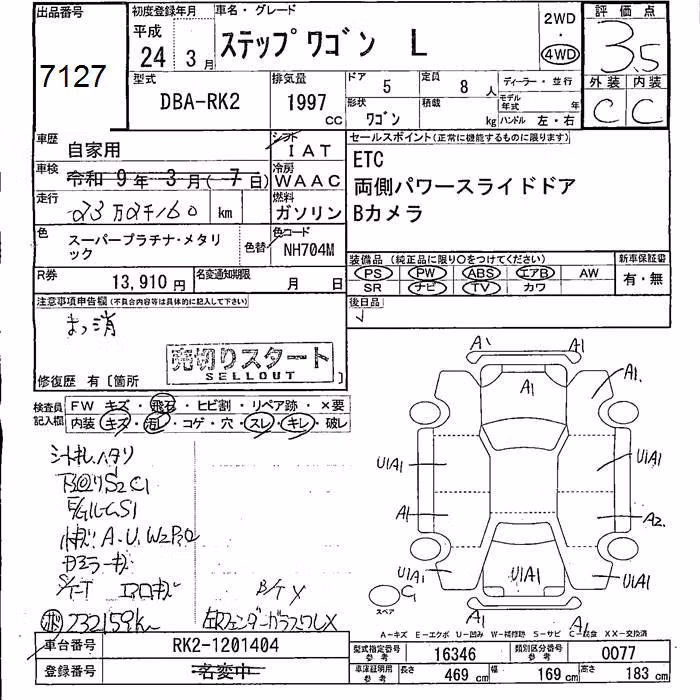 出品番号
7127
初度登録年月
平成
24年 3月
車名・グレード
ステップワゴン L
2WD
・
4WD
評価点
3.5
外装 内装
C C
型式
DBA-RK2
排気量
1997
CC
ドア 5
定員 8 人
形状 ワゴン
積載 kg
ディーラー・並行
モデル年式 年
ハンドル 左・右
車歴 自家用
車検 令和 9年 3月( 7日)
走行 23万2千160 km
色 スーパープラチナ・メタリック
色替
シフト IAT
冷房 WAAC
燃料 ガソリン
色コード NH704M
セールスポイント(正常に機能するものに限ります)
ETC
両側パワースライドドア
Bカメラ
R券 13,910円
名変通知期限 月 日
装備品(純正品に限り〇をつけてください)
PS PW ABS エアB AW
SR ナビ TV カワ
新車保証書
有・無
注意事項申告欄(不具合内容等は具体的に記入して下さい)
まっ消
後日品
売切りスタート
SELLOUT
修復歴 有〔箇所 〕
検査員記入欄
FW キズ・飛石・ヒビ割・リペア跡・×要
内装・キズ・汚レ・コゲ・穴・スレ・キレ・破レ
シートキレ ハタリ
S2 C1
S1
A.U.W2
B/T X
232159km
左RフェンダーガラスワレX
A1 A1
A1 A1.
U1A1 U1A1
A1 A2
U1A1 U1A1 U1A1
C1
スペア
A1 A1
A-キズ E-エクボ U-凹み W-補修跡 S-サビ C-腐食 XX-交換済
車台番号 RK2-1201404
登録番号 名変中
型式指定番号 参考 16346
類別区分番号 参考 0077
車庫証明用 参考
長さ 469 cm
幅 169 cm
高さ 183 cm